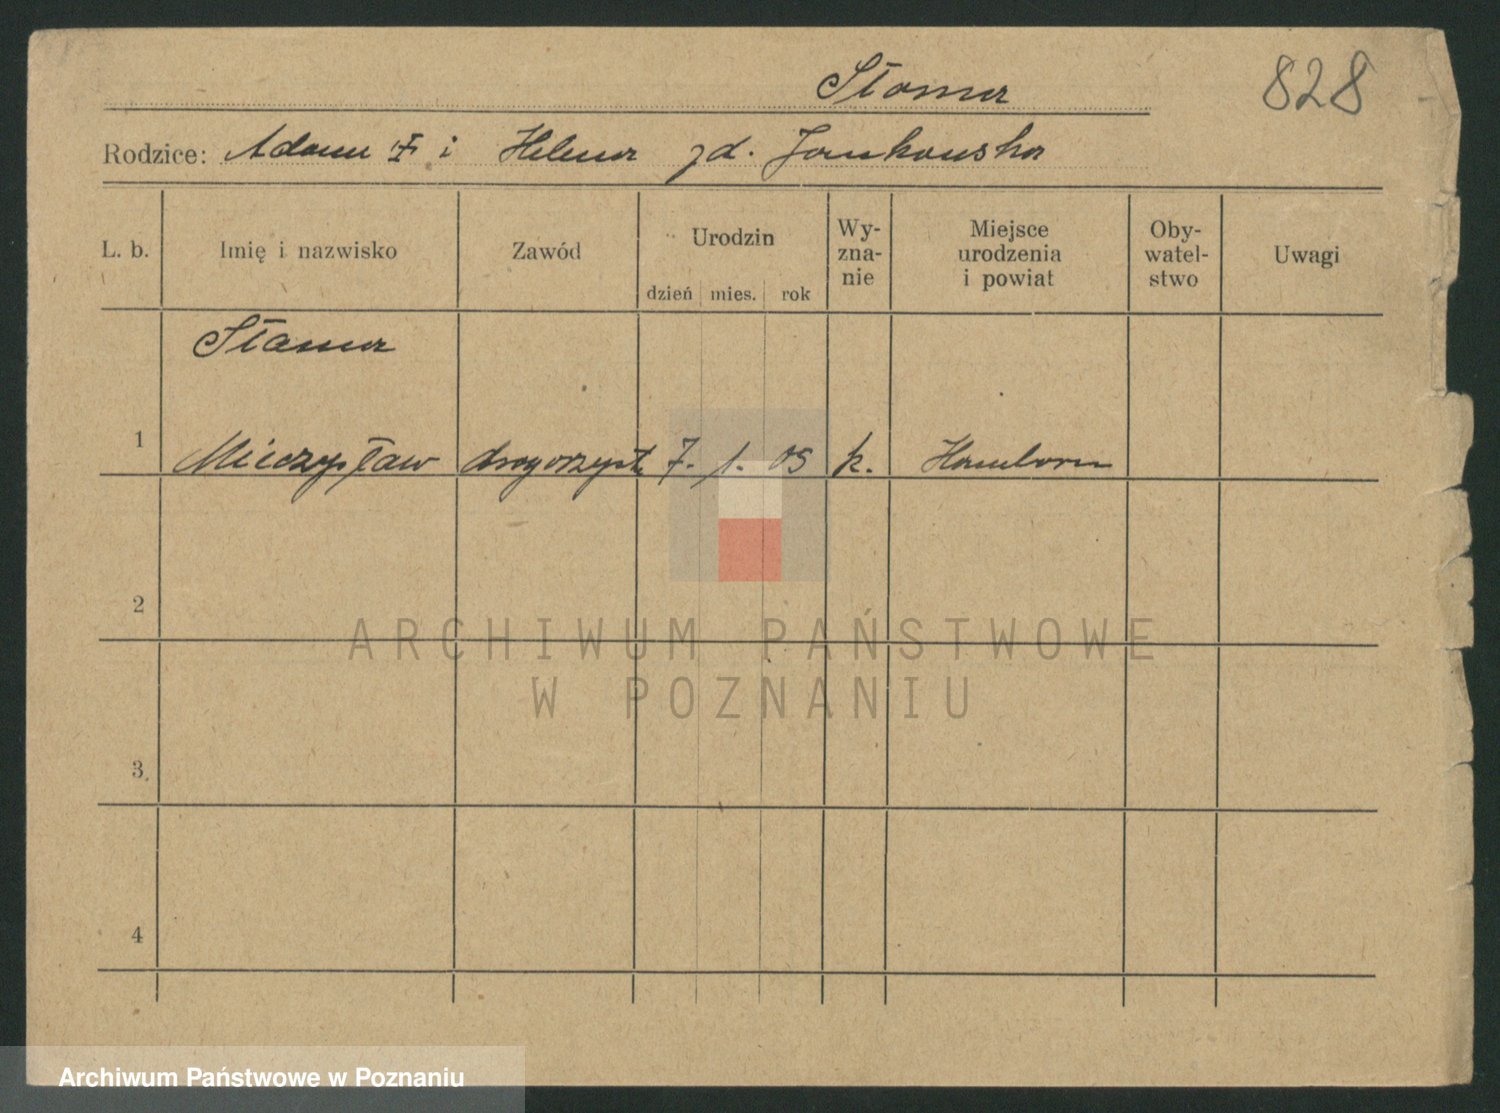 Słoma
828
Rodzice: Adam i Helena zd. Jankowska
L. b.
Imię i nazwisko
Zawód
Urodzin
dzień mies. rok
Wy-
zna-
nie
Miejsce
urodzenia
i powiat
Oby-
watel-
stwo
Uwagi
Słoma
1 Mieczysław drogerzysta 7. 1. 05 k. Hamborn
2
ARCHIWUM PAŃSTWOWE
W POZNANIU
3
4
Archiwum Państwowe w Poznaniu